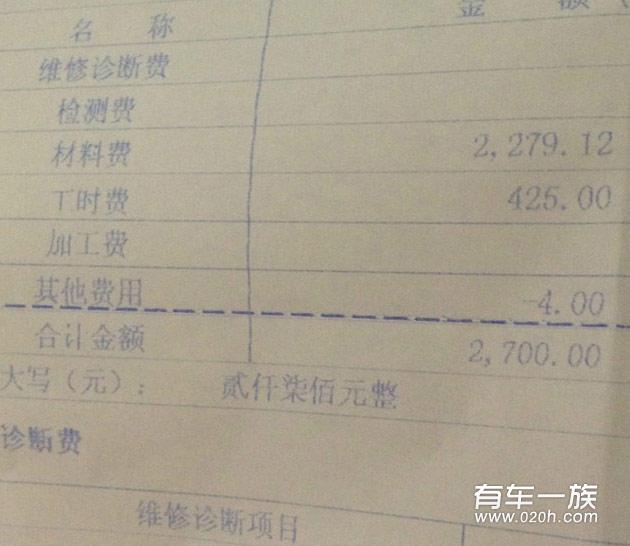 名 称 金 额
维修诊断费
检测费
材料费 2,279.12
工时费 425.00
加工费
其他费用 -4.00
合计金额 2,700.00
大写（元）： 贰仟柒佰元整
诊断费
维修诊断项目
有车一族
www.020h.com